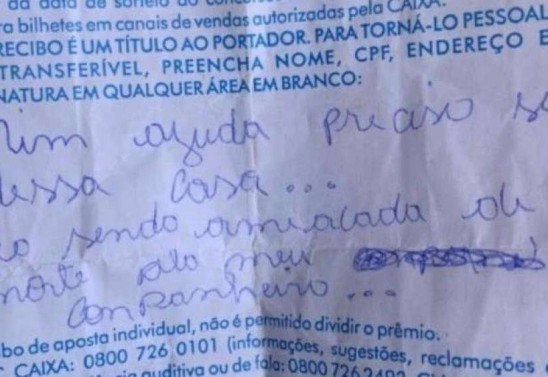 da data de sorteio do concurso
ra bilhetes em canais de vendas autorizadas pela CAIXA.
RECIBO É UM TÍTULO AO PORTADOR. PARA TORNÁ-LO PESSOAL
TRANSFERÍVEL, PREENCHA NOME, CPF, ENDEREÇO E
NATURA EM QUALQUER ÁREA EM BRANCO:
mim ajuda preciso s
dessa casa...
o sendo amiacada de
morte pelo meu
companheiro...
bo de aposta individual, não é permitido dividir o prêmio.
CAIXA: 0800 726 0101 (informações, sugestões, reclamações
auditiva ou de fala: 0800 726 2492